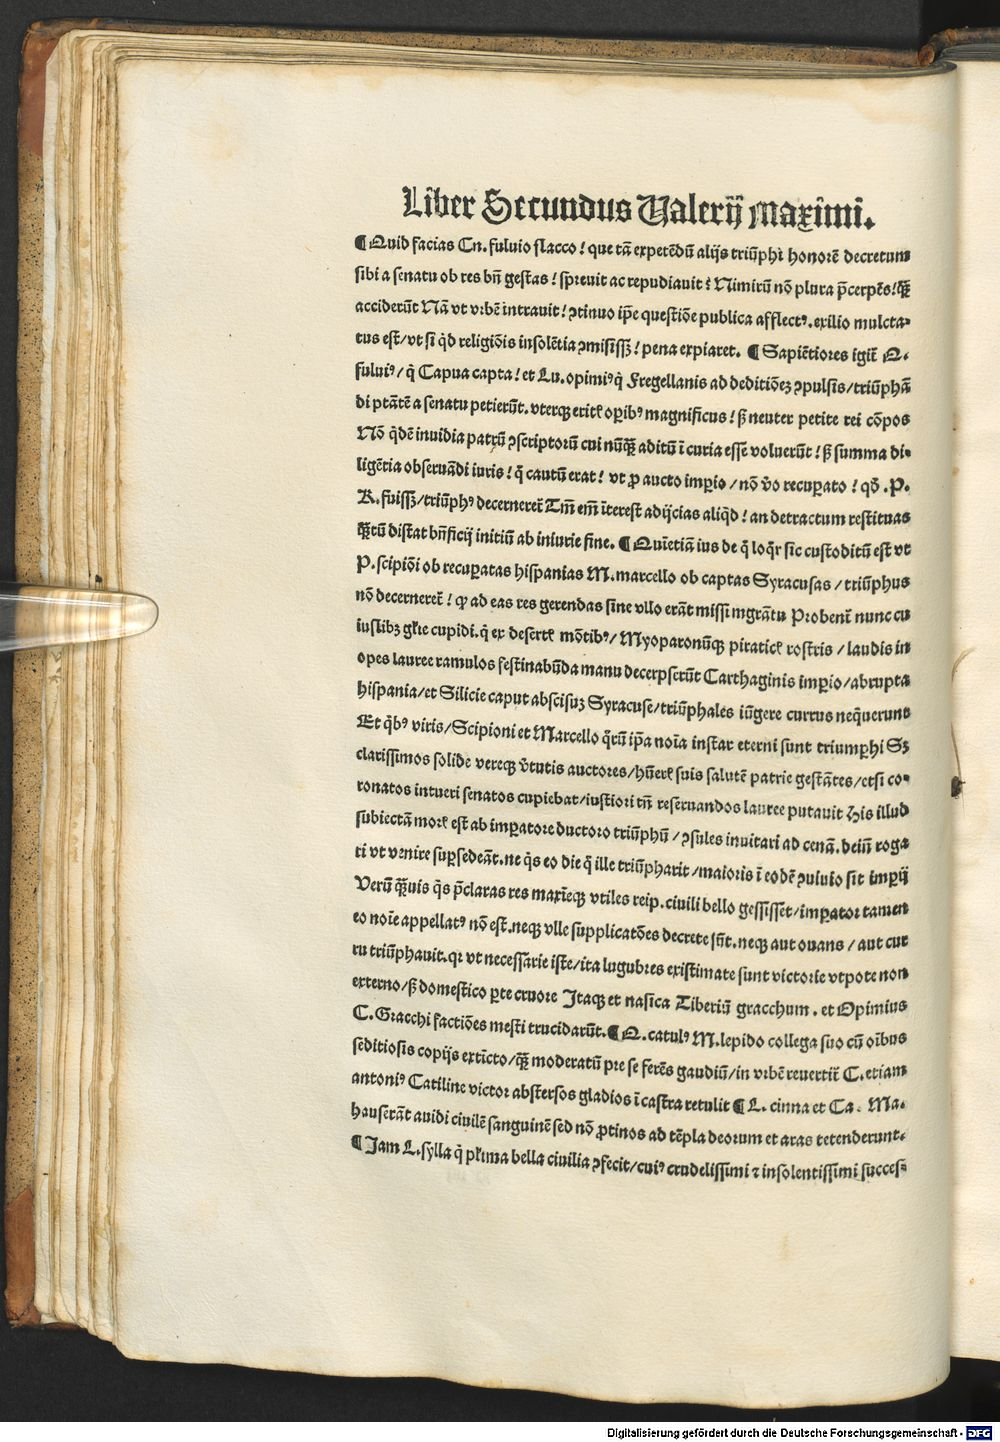 Liber Secundus Ualerij Maximi.
¶ Quid facias Cn. fuluio flacco! que tā expetēdū alijs triūphi honorē decretum
sibi a senatu ob res bñ gestas! spreuit ac repudiauit? Nimirū nō plura p̄cerpēs! qȝ̄
acciderūt Nā vt vrbē intrauit! ↄtinuo ip̄e questiōe publica afflectꝰ. exilio mulcta-
tus est/vt si qd̄ religiōis insolētia ↄmisissȝ! pena expiaret. ¶ Sapiētiores igit̄ Q.
fuluiꝰ/ q̄ Capua capta! et Lu. opimiꝰ q̄ Fregellanis ad deditiōeȝ ↄpulsis/triūphā
di ptātē a senatu petierūt. vterqȝ eritꝭ opībꝰ magnificus! sȝ neuter petite rei cōpos
Nō q̄dē inuidia patrū ↄscriptorū cui nūqȝ̄ aditū ī curia esse voluerūt! sȝ summa di-
ligētia obseruādi iuris! q̄ cautū erat! vt ꝓ aucto imꝑio/ nō v̄o recuꝑato! qd̄ .P.
R. fuissȝ/triūphꝰ decerneret̄ Tm̄ em̄ īterest adijcias aliqd̄! an detractum restituas
qȝ̄tū distat bn̄ficij initiū ab iniurie fine. ¶ Quīetiā ius de q̄ loqr̄ sic custoditū est vt
P. scipiōi ob recuꝑatas hispanias M. marcello ob captas Syracusas / triūphus
nō decerneret̄! ꝙ ad eas res gerendas sine vllo erāt missi mgrātu Probent̄ nunc cu
iuslibȝ gl̄ie cupidi. q̄ ex desertꝭ mōtibꝰ/ Myoparonūqȝ piraticꝭ rostris / laudis in
opes lauree ramulos festinabūda manu decerpserūt Carthaginis imꝑio/abrupta
hispania/et Silicie caput abscisuȝ Syracuse/triūphales iūgere currus neq̄uerunt
Et q̄bꝰ viris/Scipioni et Marcello q̄rū ip̄a noīa instar eterni sunt triumphi Sȝ
clarissimos solide vereqȝ v̄tutis auctores/hūerꝭ suis salutē patrie gestātes/etsi co-
ronatos intueri senatos cupiebat/iustiori tn̄ reseruandos lauree putauit His illud
subiectā morꝭ est ab imꝑatore ductoro triūphū / ↄsules inuitari ad cenā. deiū roga
ti vt venire suꝑsedeāt. ne q̄s eo die q̄ ille triūpharit /maioris ī eodē ↄuiuio sit imꝑij
Verū qȝ̄uis q̄s p̄claras res maxīeqȝ vtiles reip. ciuili bello gessisset/imꝑator tamen
eo noīe appellatꝰ nō est. neqȝ vlle supplicatōes decrete sūt. neqȝ aut ouans / aut cur
ru triūphauit. qr vt necessarie iste/ita lugubres existimate sunt victorie vtpote non
externo/sȝ domestico ꝑte cruore Itaqȝ et nasica Tiberiū gracchum. et Opimius
C. Gracchi factiōes mesti trucidarūt. ¶ Q. catulꝰ M. lepido collega suo cū oībus
seditiosis copijs extīcto/qȝ̄ moderatū pre se ferēs gaudiū/in vrbē reuertit̄ C. etiam
antoniꝰ Catiline victor abstersos gladios ī castra retulit ¶ L. cinna et Ca. Ma.
hauserāt auidi ciuilē sanguinē sed nō ꝓtinos ad tēpla deorum et aras tetenderunt.
¶ Iam L. sylla q̄ plīma bella ciuilia ↄfecit/cuiꝰ crudelissimi ⁊ insolentissimi succes-
Digitalisierung gefördert durch die Deutsche Forschungsgemeinschaft - DFG